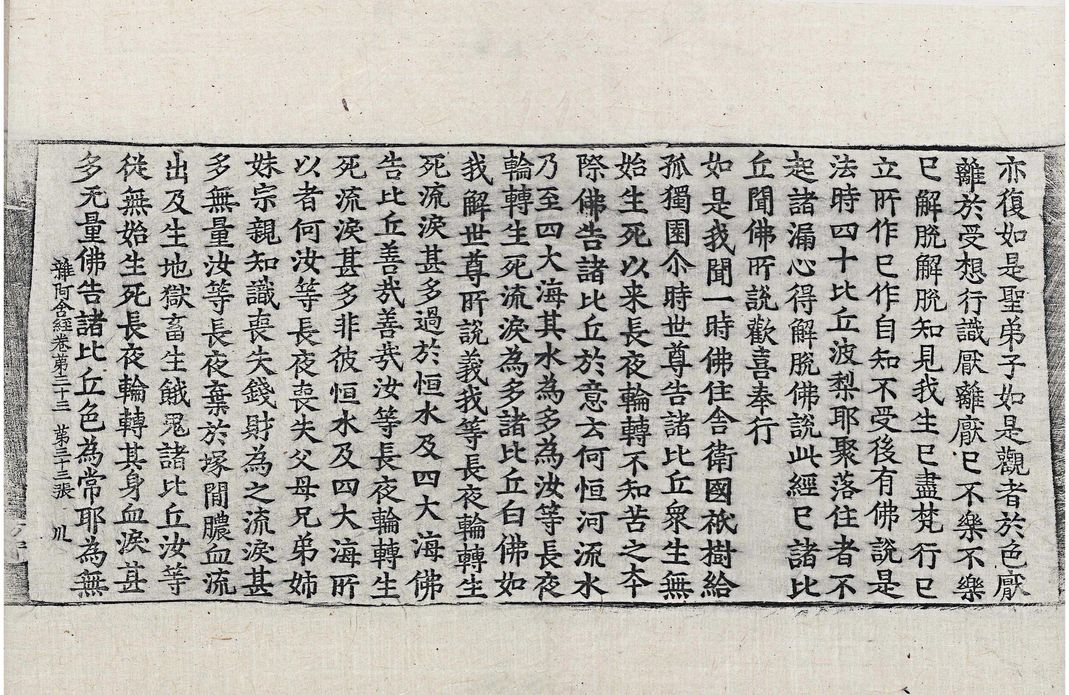 亦復如是聖弟子如是觀者於色厭
離於受想行識厭離厭已不樂不樂
已解脫解脫知見我生已盡梵行已
立所作已作自知不受後有佛說是
法時四十比丘波梨耶聚落住者不
起諸漏心得解脫佛說此經已諸比
丘聞佛所說歡喜奉行
如是我聞一時佛住舍衛國祇樹給
孤獨園尒時世尊告諸比丘衆生無
始生死以来長夜輪轉不知苦之夲
際佛告諸比丘於意云何恒河流水
乃至四大海其水為多為汝等長夜
輪轉生死流淚為多諸比丘白佛如
我解世尊所說義我等長夜輪轉生
死流淚甚多過於恒水及四大海佛
告比丘善㢤善㢤汝等長夜輪轉生
死流淚甚多非彼恒水及四大海所
以者何汝等長夜喪失父母兄弟姉
妹宗親知識喪失錢財為之流淚甚
多無量汝等長夜棄於塚閒膿血流
出及生地獄畜生餓鬼諸比丘汝等
從無始生死長夜輪轉其身血淚甚
多无量佛告諸比丘色為常耶為無
雜阿含経卷第三十三 第三十三張 㐆